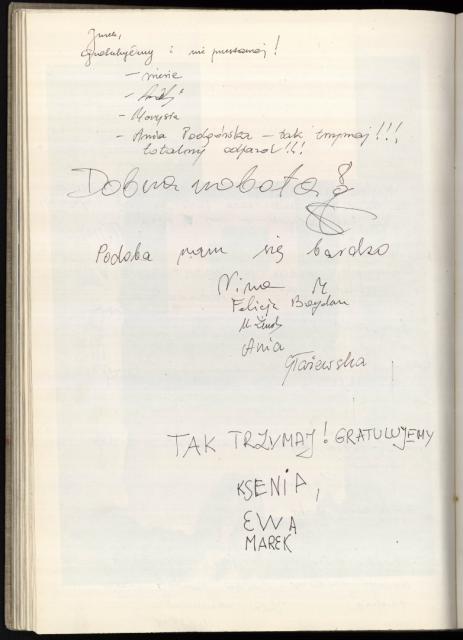 gratulujemy i nie przestawaj!
- Marysia
- Ania Podgórska - tak trzymaj!!!
totalny odjazd!!!
Dobra robota
Podoba nam się bardzo
Nina M
Felicja Bogdan
Ania
TAK TRZYMAJ! GRATULUJEMY
KSENIA,
EWA
MAREK